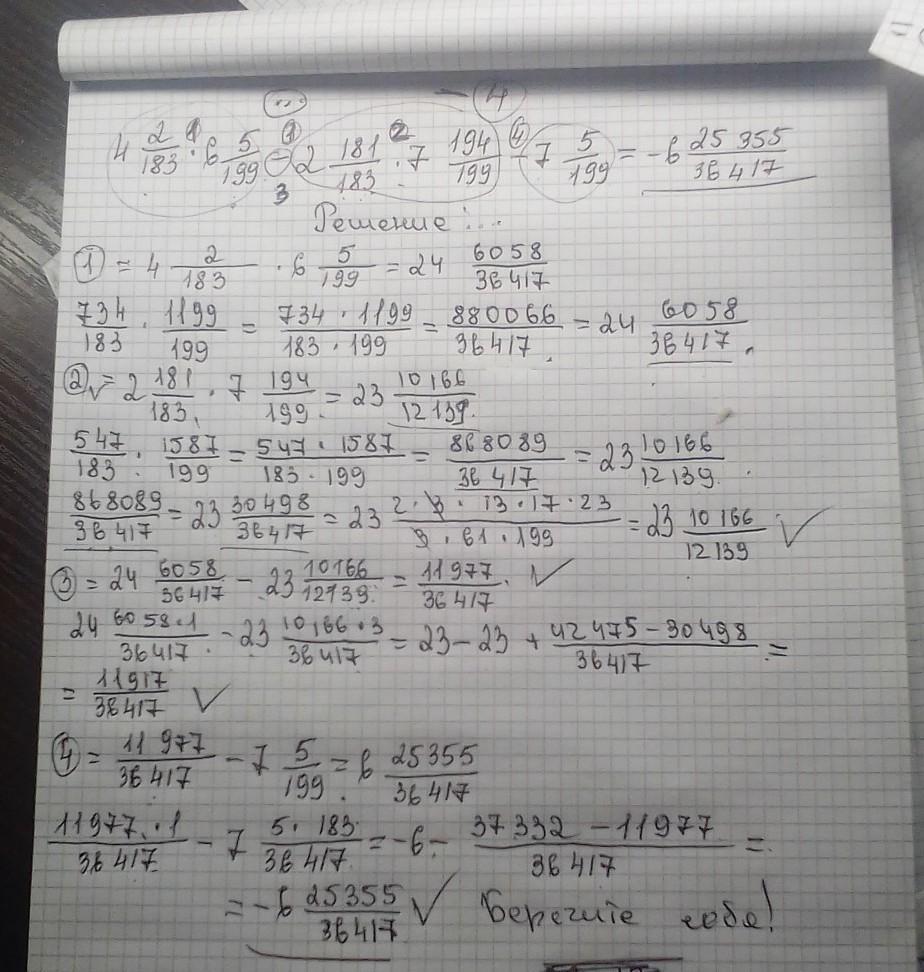 4 2/183 · 6 5/199 - 2 181/183 · 7 194/199 - 7 5/199 = -6 25355/36417
Решение:...
① = 4 2/183 · 6 5/199 = 24 6058/36417
734/183 · 1199/199 = 734·1199/183·199 = 880066/36417 = 24 6058/36417.
② = 2 181/183 · 7 194/199 = 23 10166/12139
547/183 · 1587/199 = 547·1587/183·199 = 868089/36417 = 23 10166/12139.
868089/36417 = 23 30498/36417 = 23 2·3·13·17·23/3·61·199 = 23 10166/12139 ✓
③ = 24 6058/36417 - 23 10166/12139 = 11977/36417. ✓
24 6058·1/36417 - 23 10166·3/36417 = 23-23 + 42475-30498/36417 =
= 11917/36417 ✓
④ = 11977/36417 - 7 5/199 = 6 25355/36417
11977·1/36417 - 7 5·183/36417 = -6 - 37332-11977/36417 =
= -6 25355/36417 ✓ Берегите себя!